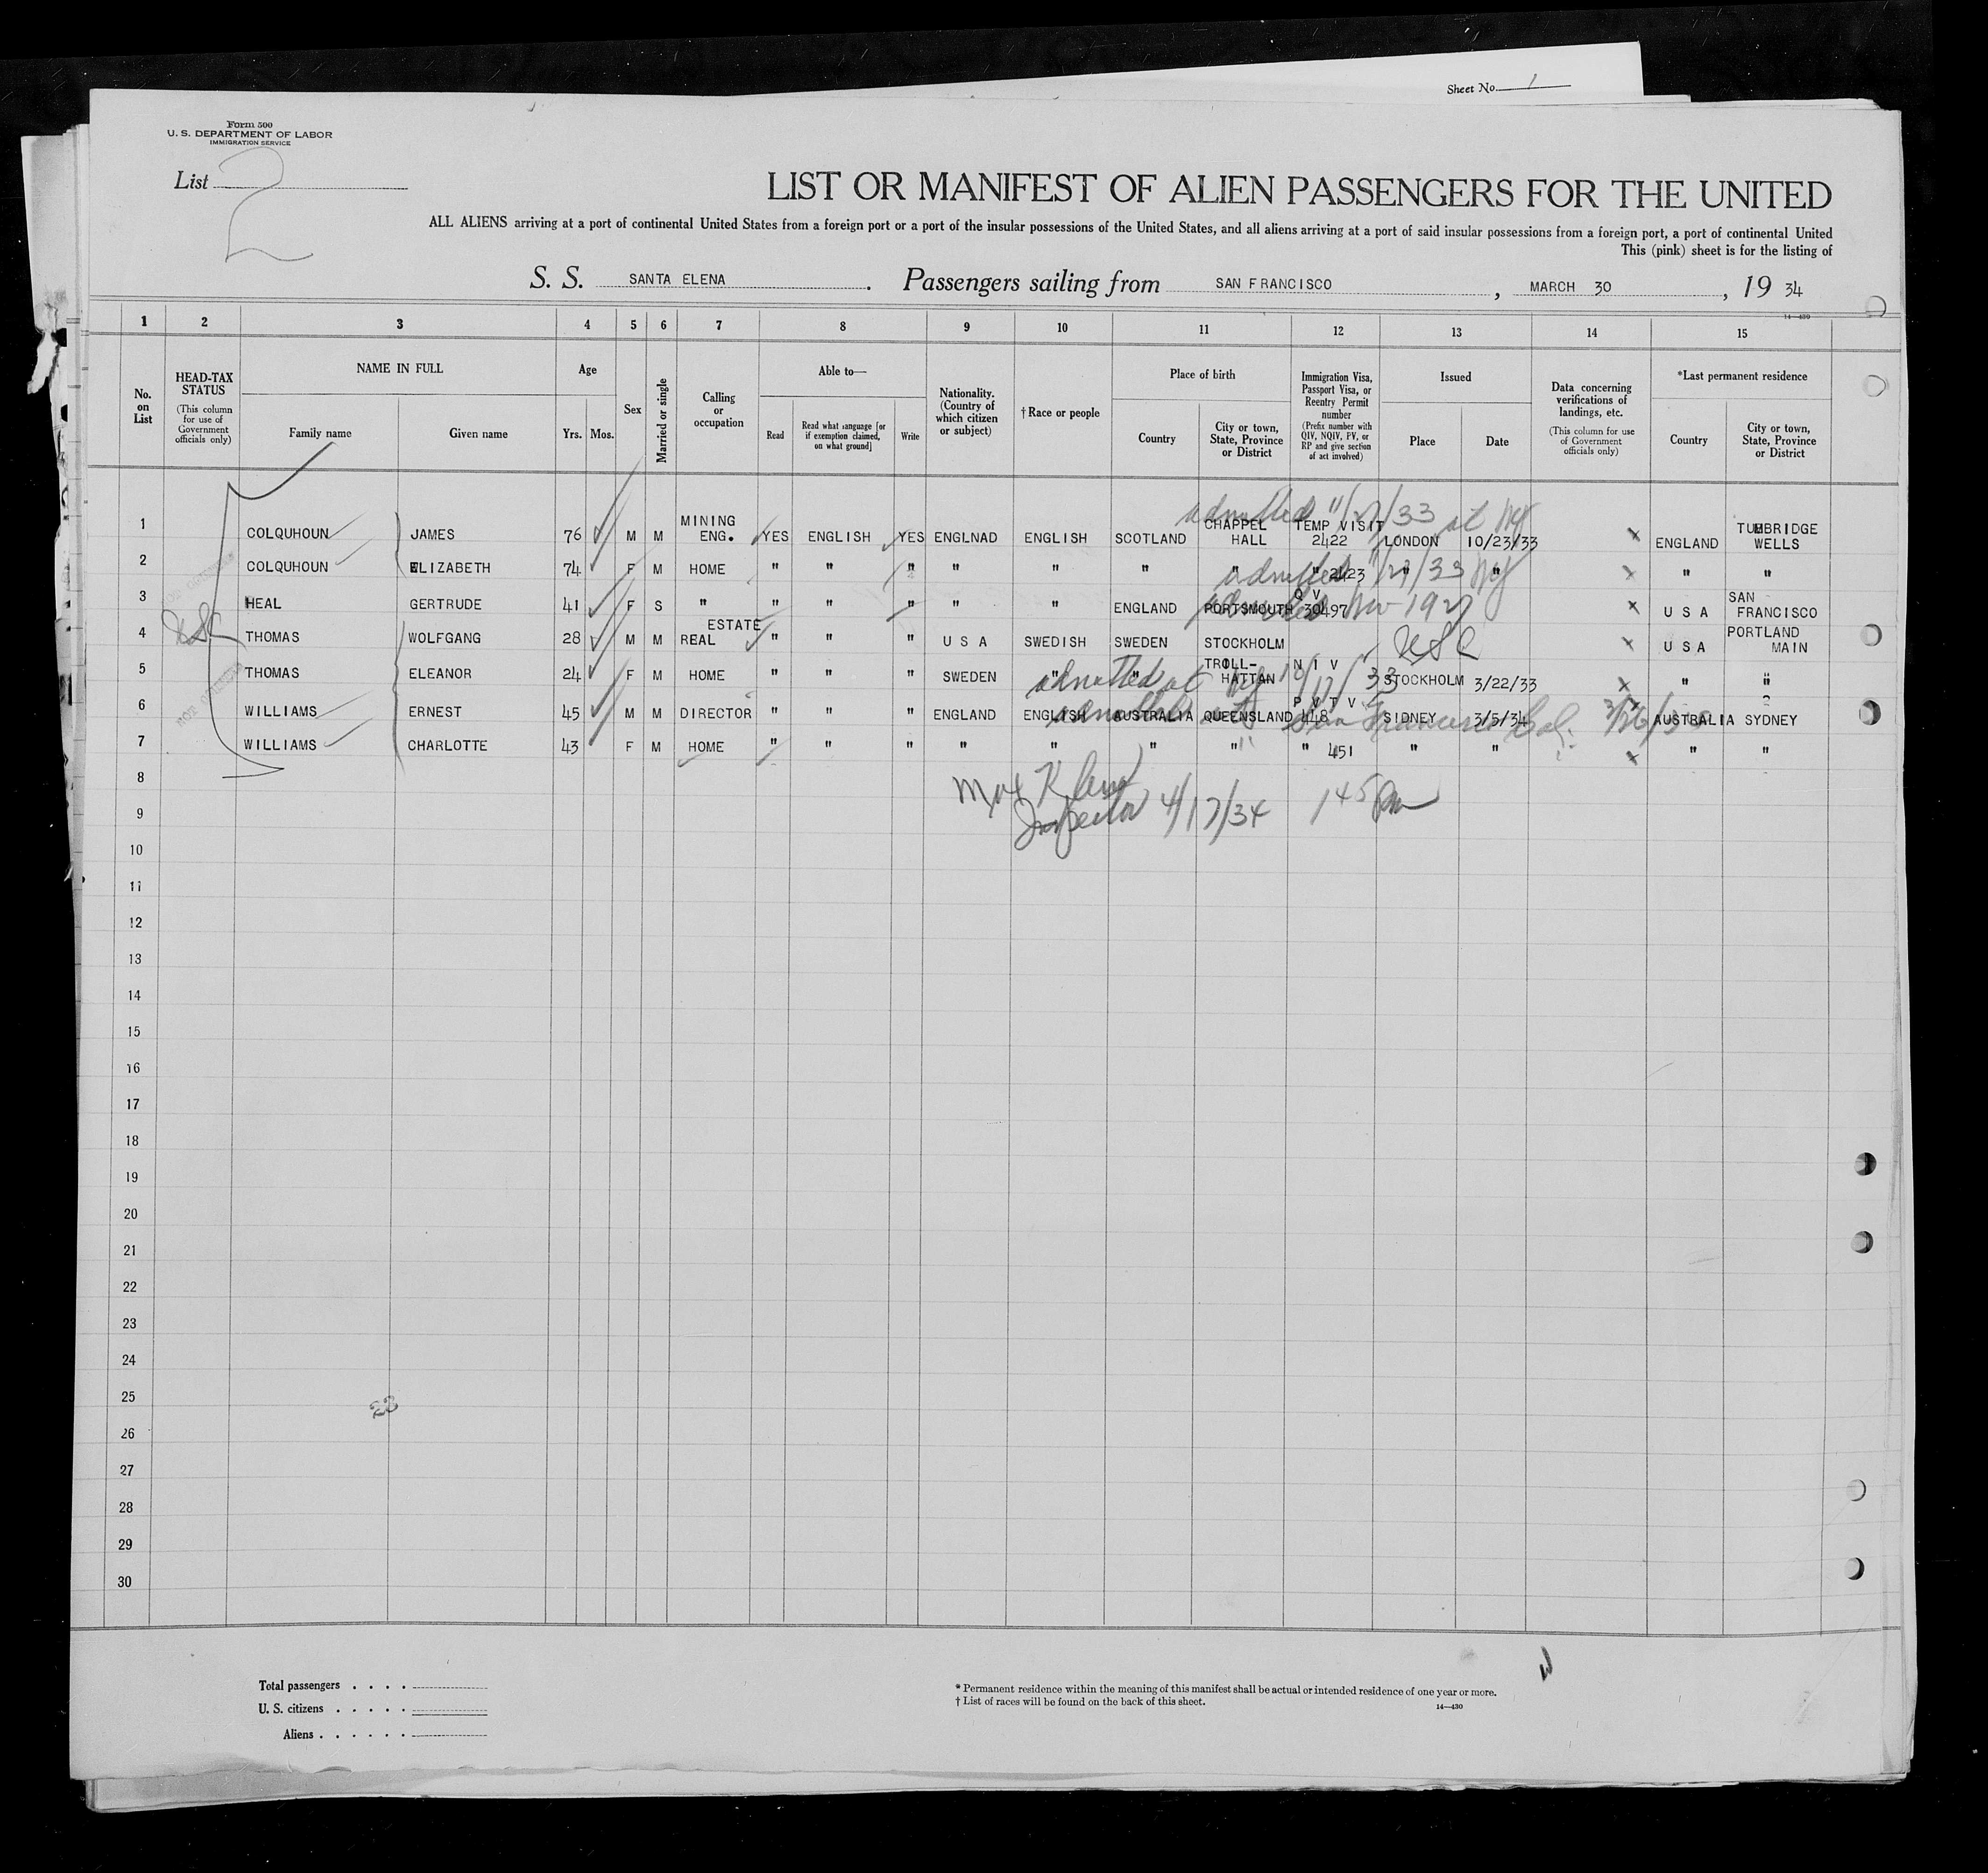 Sheet No. 1
Form 500
U. S. DEPARTMENT OF LABOR
IMMIGRATION SERVICE
List 2
LIST OR MANIFEST OF ALIEN PASSENGERS FOR THE UNITED
ALL ALIENS arriving at a port of continental United States from a foreign port or a port of the insular possessions of the United States, and all aliens arriving at a port of said insular possessions from a foreign port, a port of continental United
This (pink) sheet is for the listing of
S. S. SANTA ELENA. Passengers sailing from SAN FRANCISCO, MARCH 30, 19 34
14—430
1 2 3 4 5 6 7 8 9 10 11 12 13 14 15
No. on List
HEAD-TAX STATUS
(This column for use of Government officials only)
NAME IN FULL
Family name Given name
Age
Yrs. Mos.
Sex
Married or single
Calling or occupation
Able to—
Read Read what language [or if exemption claimed, on what ground] Write
Nationality. (Country of which citizen or subject)
† Race or people
Place of birth
Country City or town, State, Province or District
Immigration Visa, Passport Visa, or Reentry Permit number
(Prefix number with QIV, NQIV, PV, or RP and give section of act involved)
Issued
Place Date
Data concerning verifications of landings, etc.
(This column for use of Government officials only)
*Last permanent residence
Country City or town, State, Province or District
admitted 11/27/33 at NY
1 COLQUHOUN JAMES 76 M M MINING ENG. YES ENGLISH YES ENGLNAD ENGLISH SCOTLAND CHAPPEL HALL TEMP VISIT 2422 LONDON 10/23/33 x ENGLAND TUMBRIDGE WELLS
2 COLQUHOUN ELIZABETH 74 F M HOME " " " " " " " " 2423 " " x " "
admitted 11/27/33 NY
3 HEAL GERTRUDE 41 F S " " " " " " ENGLAND PORTSMOUTH Q V 30497 x U S A SAN FRANCISCO
admitted Nov 1927
USC
4 THOMAS WOLFGANG 28 M M REAL ESTATE " " " U S A SWEDISH SWEDEN STOCKHOLM USC x U S A PORTLAND MAIN
5 THOMAS ELEANOR 24 F M HOME " " " SWEDEN " " TROLL-HATTAN N I V STOCKHOLM 3/22/33 x " "
admitted at NY 10/17/33
6 WILLIAMS ERNEST 45 M M DIRECTOR " " " ENGLAND ENGLISH AUSTRALIA QUEENSLAND P V T V 448 SIDNEY 3/5/34 x AUSTRALIA SYDNEY
admitted at San Francisco Cal.
7 WILLIAMS CHARLOTTE 43 F M HOME " " " " " " " " 451 " " x " "
8
Inspector 4/17/34 145 Pm
9
10
11
12
13
14
15
16
17
18
19
20
21
22
23
24
25
26
27
28
29
30
Total passengers . . . .
U. S. citizens . . . . .
Aliens . . . . . .
* Permanent residence within the meaning of this manifest shall be actual or intended residence of one year or more.
† List of races will be found on the back of this sheet.
14—430